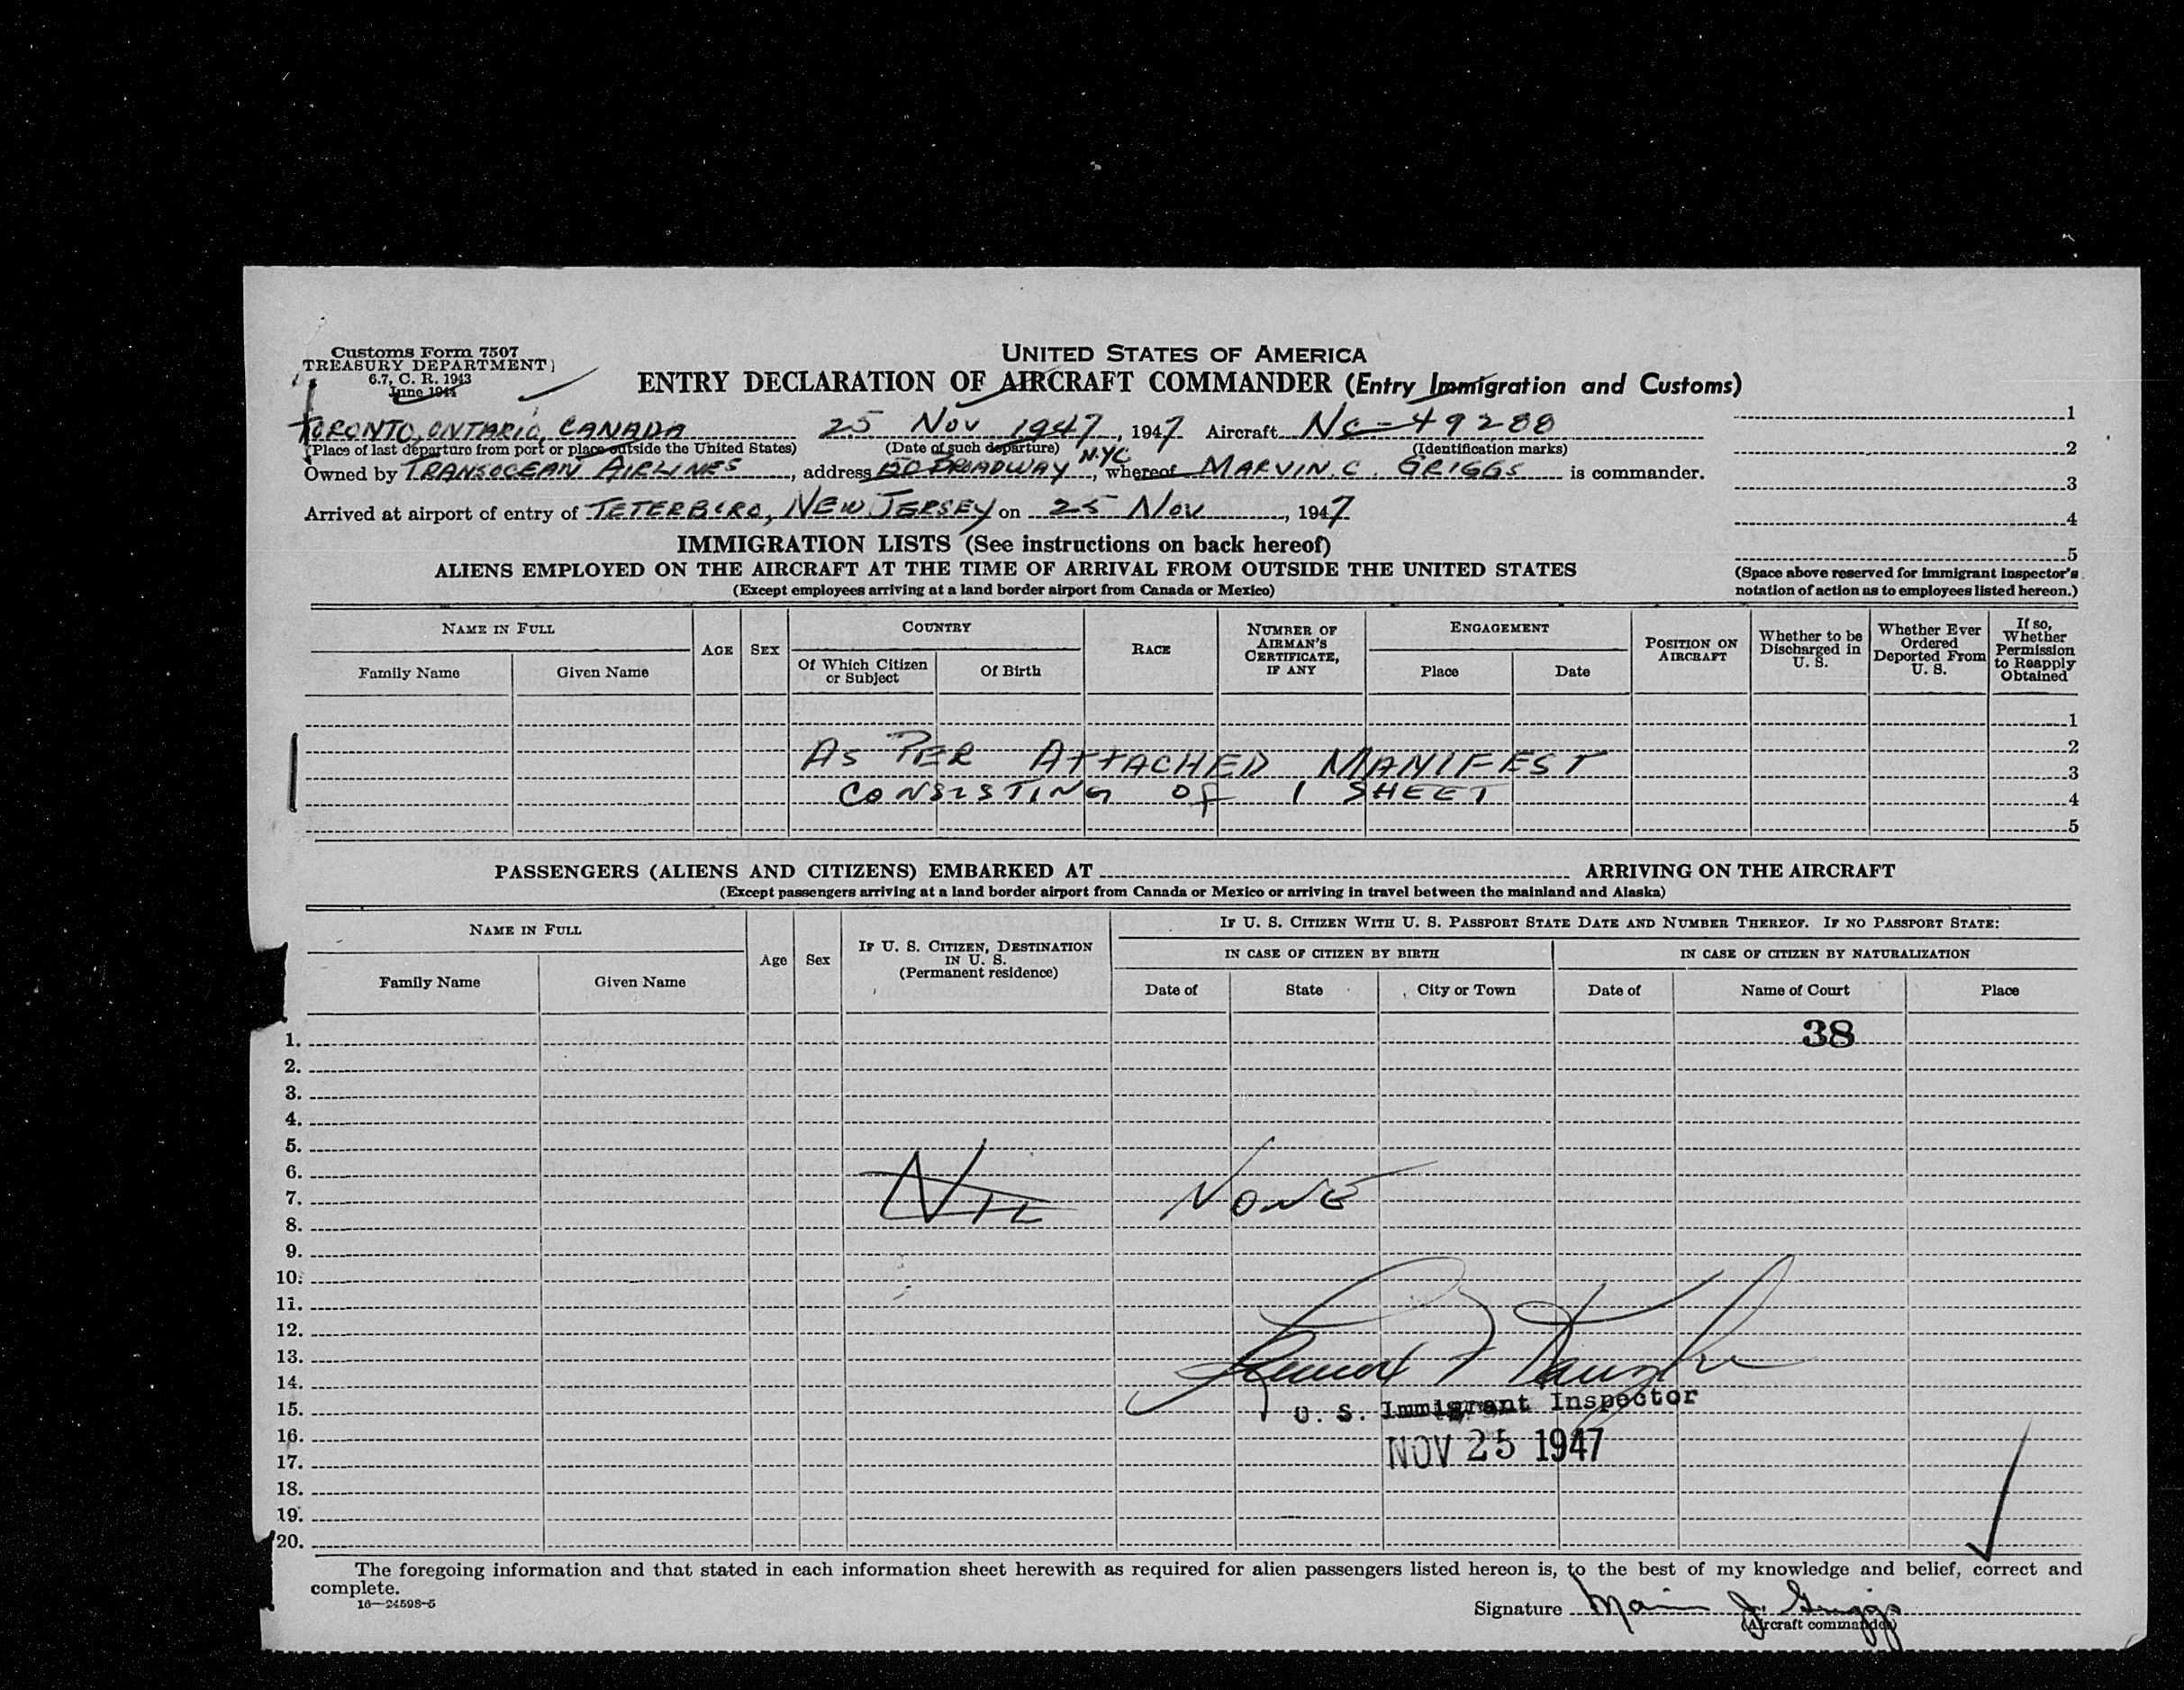 Customs Form 7507
TREASURY DEPARTMENT
6.7, C. R. 1943
June 1944
UNITED STATES OF AMERICA
ENTRY DECLARATION OF AIRCRAFT COMMANDER (Entry Immigration and Customs)
TORONTO, ONTARIO, CANADA 25 NOV 1947, 1947 Aircraft NC-49288
(Place of last departure from port or place outside the United States) (Date of such departure) (Identification marks)
Owned by TRANSOCEAN AIRLINES, address BROADWAY N.Y.C, whereof MARVIN. C. GRIGGS is commander.
Arrived at airport of entry of TETERBORO, NEW JERSEY on 25 NOV, 1947
1
2
3
4
5
(Space above reserved for Immigrant Inspector's
notation of action as to employees listed hereon.)
IMMIGRATION LISTS (See instructions on back hereof)
ALIENS EMPLOYED ON THE AIRCRAFT AT THE TIME OF ARRIVAL FROM OUTSIDE THE UNITED STATES
(Except employees arriving at a land border airport from Canada or Mexico)
NAME IN FULL
Family Name Given Name
AGE
SEX
COUNTRY
Of Which Citizen or Subject Of Birth
RACE
NUMBER OF AIRMAN'S CERTIFICATE, IF ANY
ENGAGEMENT
Place Date
POSITION ON AIRCRAFT
Whether to be Discharged in U. S.
Whether Ever Ordered Deported From U. S.
If so, Whether Permission to Reapply Obtained
1
2
3
4
5
AS PER ATTACHED MANIFEST
CONSISTING OF 1 SHEET
PASSENGERS (ALIENS AND CITIZENS) EMBARKED AT ARRIVING ON THE AIRCRAFT
(Except passengers arriving at a land border airport from Canada or Mexico or arriving in travel between the mainland and Alaska)
NAME IN FULL
Family Name Given Name
Age
Sex
IF U. S. CITIZEN, DESTINATION IN U. S.
(Permanent residence)
IF U. S. CITIZEN WITH U. S. PASSPORT STATE DATE AND NUMBER THEREOF. IF NO PASSPORT STATE:
IN CASE OF CITIZEN BY BIRTH IN CASE OF CITIZEN BY NATURALIZATION
Date of State City or Town Date of Name of Court Place
38
1.
2.
3.
4.
5.
6.
7.
8.
9.
10.
11.
12.
13.
14.
15.
16.
17.
18.
19.
20.
NIL NONE
U. S. Immigrant Inspector
NOV 25 1947
The foregoing information and that stated in each information sheet herewith as required for alien passengers listed hereon is, to the best of my knowledge and belief, correct and
complete.
16—24598-5
Signature J. Griggs
(Aircraft commander)